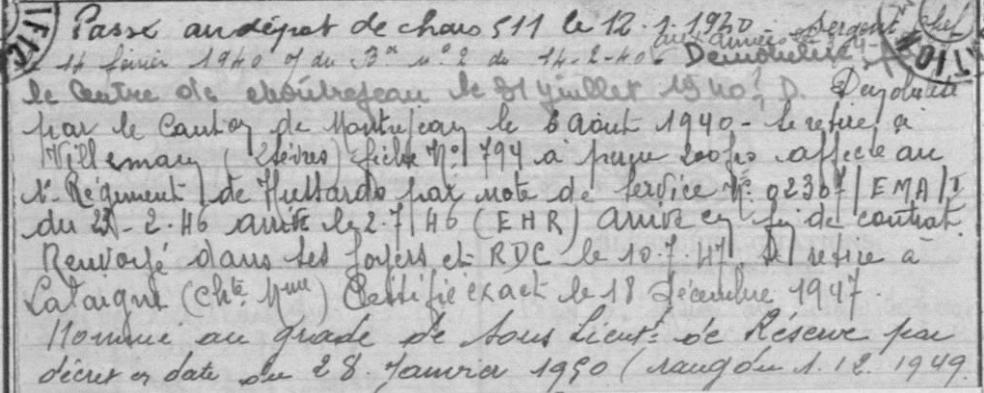 Passé au dépôt de chars 511 le 12.1.1940. Sergent chef
14 février 1940 O/ du Bon n° 2 du 14-2-40. Démobilisé
le Centre de Montréjeau le 31 juillet 1940. D. Démobilisé
par le Canton de Montréjeau le 6 Aout 1940 - Se retire à
Villemain (2 Sèvres) fiche N° 794 à perçu 200frs affecté au
1e Régiment de Hussards par note de Service N° 02307/EMA/I
du 21-2.46 arrivé le 2.7/46 (EHR) arrive en fin de contrat.
Renvoyé dans ses foyers et RDC le 10.7.47. Se retire à
Lalaigne (Chte Mme) Certifié exact le 18 Décembre 1947.
Nommé au grade de Sous Lieut. de Réserve par
décret en date du 28 Janvier 1950 (rang du 1.12.1949.